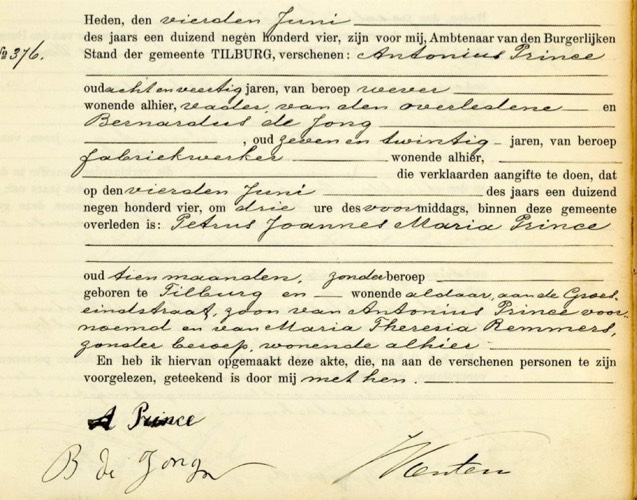 Heden, den vierden Juni
des jaars een duizend negen honderd vier, zijn voor mij, Ambtenaar van den Burgerlijken
No 376.
Stand der gemeente TILBURG, verschenen: Antonius Prince
oud acht en veertig jaren, van beroep wever
wonende alhier, vader, van den overledene en
Bernardus de Jong
, oud zeven en twintig jaren, van beroep
fabriekwerker wonende alhier,
die verklaarden aangifte te doen, dat
op den vierden Juni des jaars een duizend
negen honderd vier, om drie ure des voormiddags, binnen deze gemeente
overleden is: Petrus Joannes Maria Prince
oud tien maanden, zonder beroep
geboren te Tilburg en wonende aldaar, aan de Groes-
eindstraat, zoon van Antonius Prince voor-
noemd en van Maria Theresia Remmers,
zonder beroep, wonende alhier
En heb ik hiervan opgemaakt deze akte, die, na aan de verschenen personen te zijn
voorgelezen, geteekend is door mij met hen.
A Prince
B de Jong